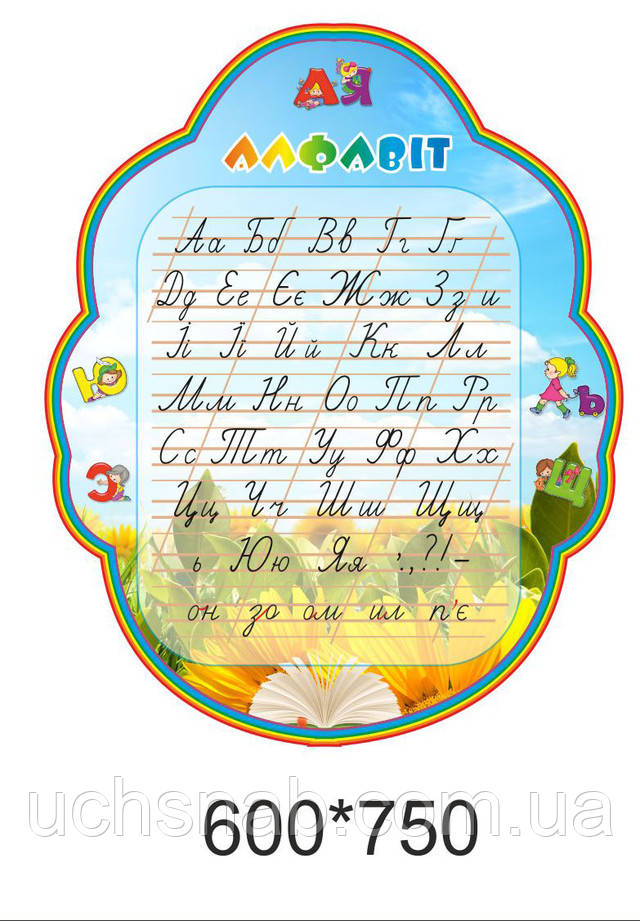 АЯ
АЛФАВІТ
Аа Бб Вв Гг Ґґ
Дд Ее Єє Жж Зз и
Іі Її Йй Кк Лл
Ю
Мм Нн Оо Пп Рр
Ь
Сс Тт Уу Фф Хх
З
Щ
Цц Чч Шш Щщ
ь Юю Яя ’.,?!–
он зо ом ил п'є
uchsnab.com.ua
600*750